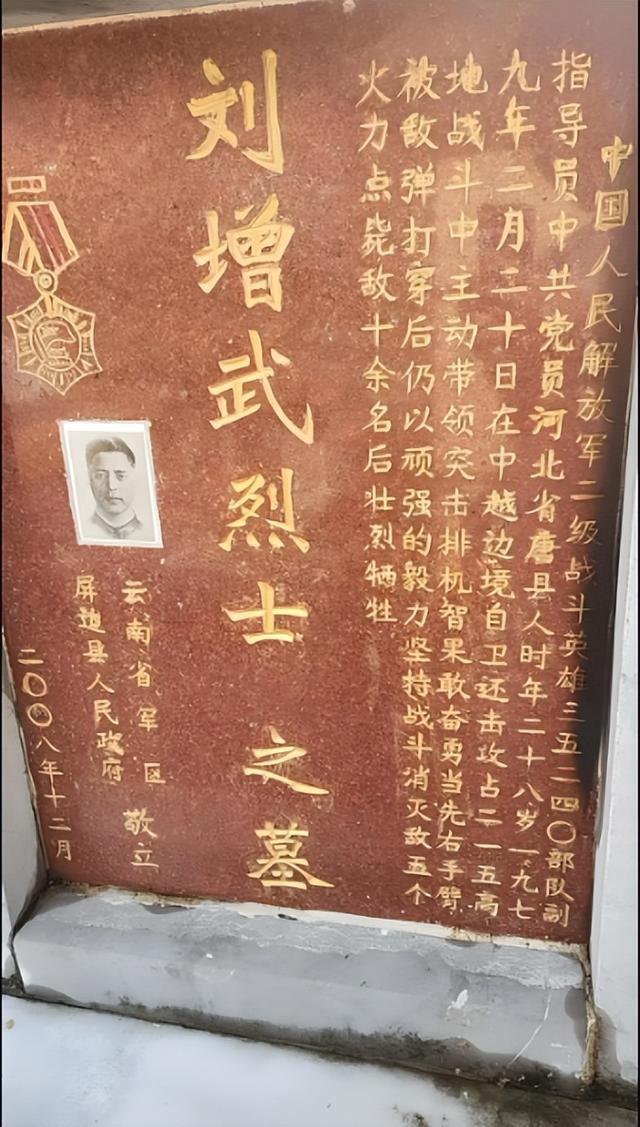 中国人民解放军二级战斗英雄三五二四〇部队副
指导员中共党员河北省唐县人时年二十八岁一九七
九年二月二十日在中越边境自卫还击攻占二一五高
地战斗中主动带领突击排机智果敢奋勇当先右手臂
被敌弹打穿后仍以顽强的毅力坚持战斗消灭敌五个
火力点毙敌十余名后壮烈牺牲
刘增武烈士之墓
云南省军区
屏边县人民政府
敬立
二〇〇八年十二月